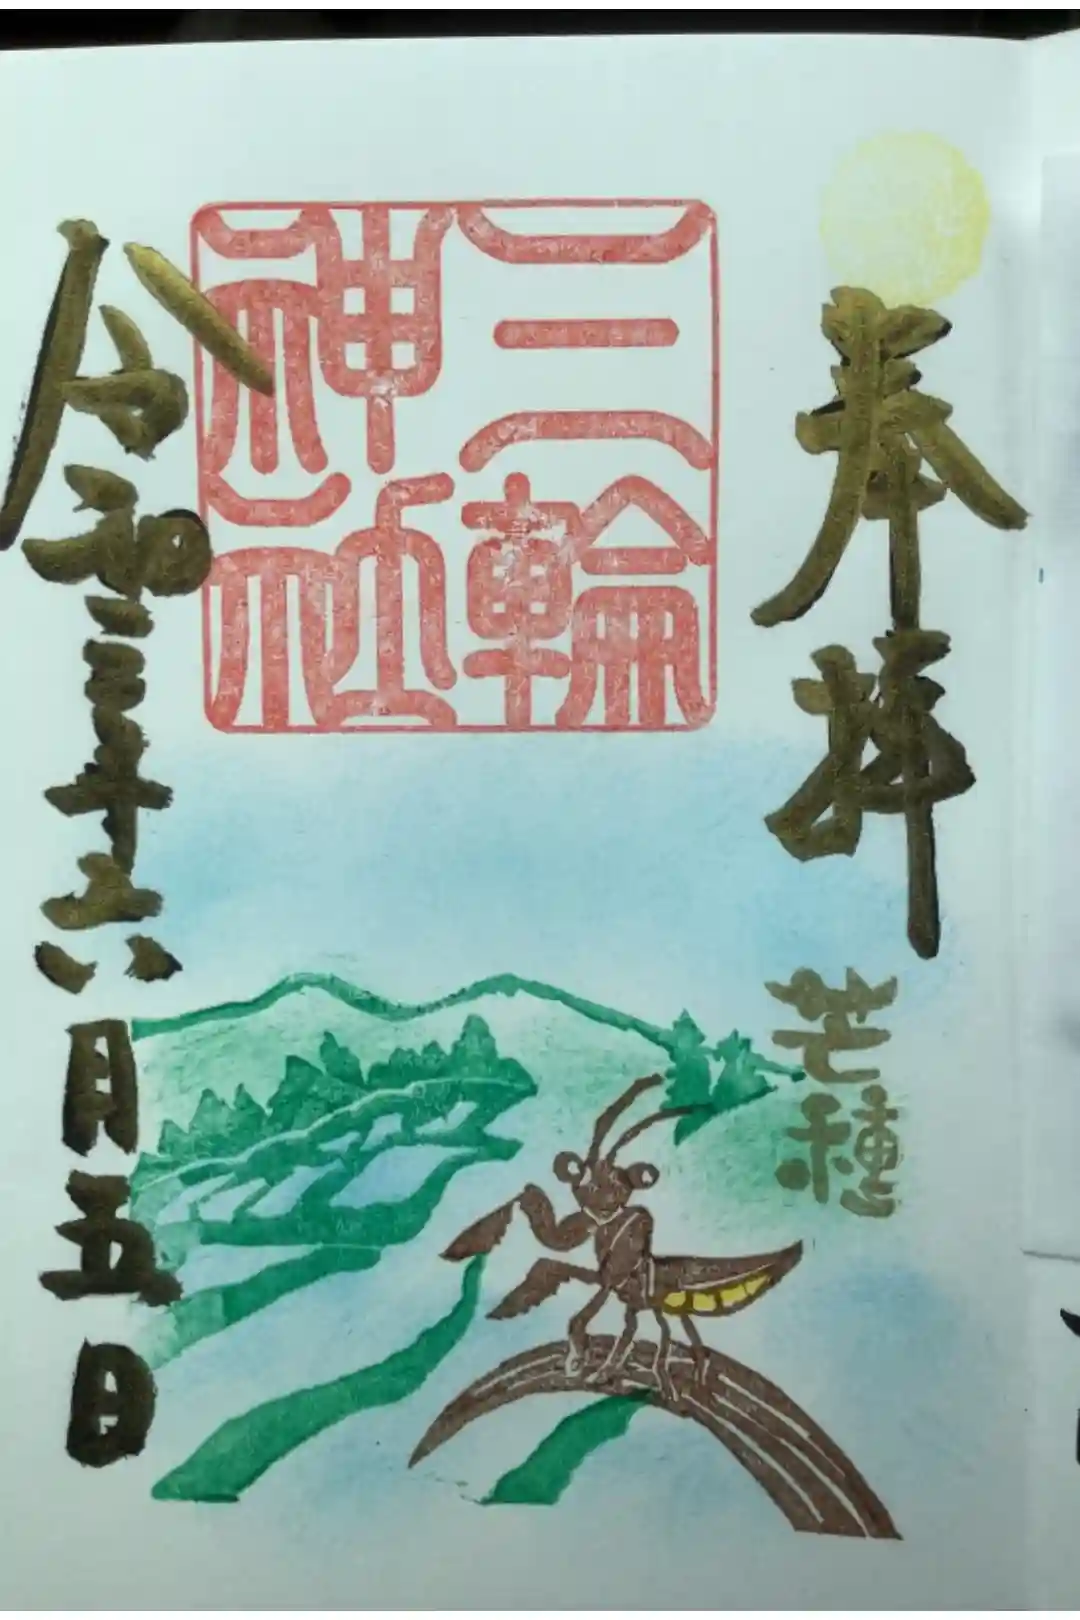 奉拝
芒種
三輪
神社
令和三年六月五日